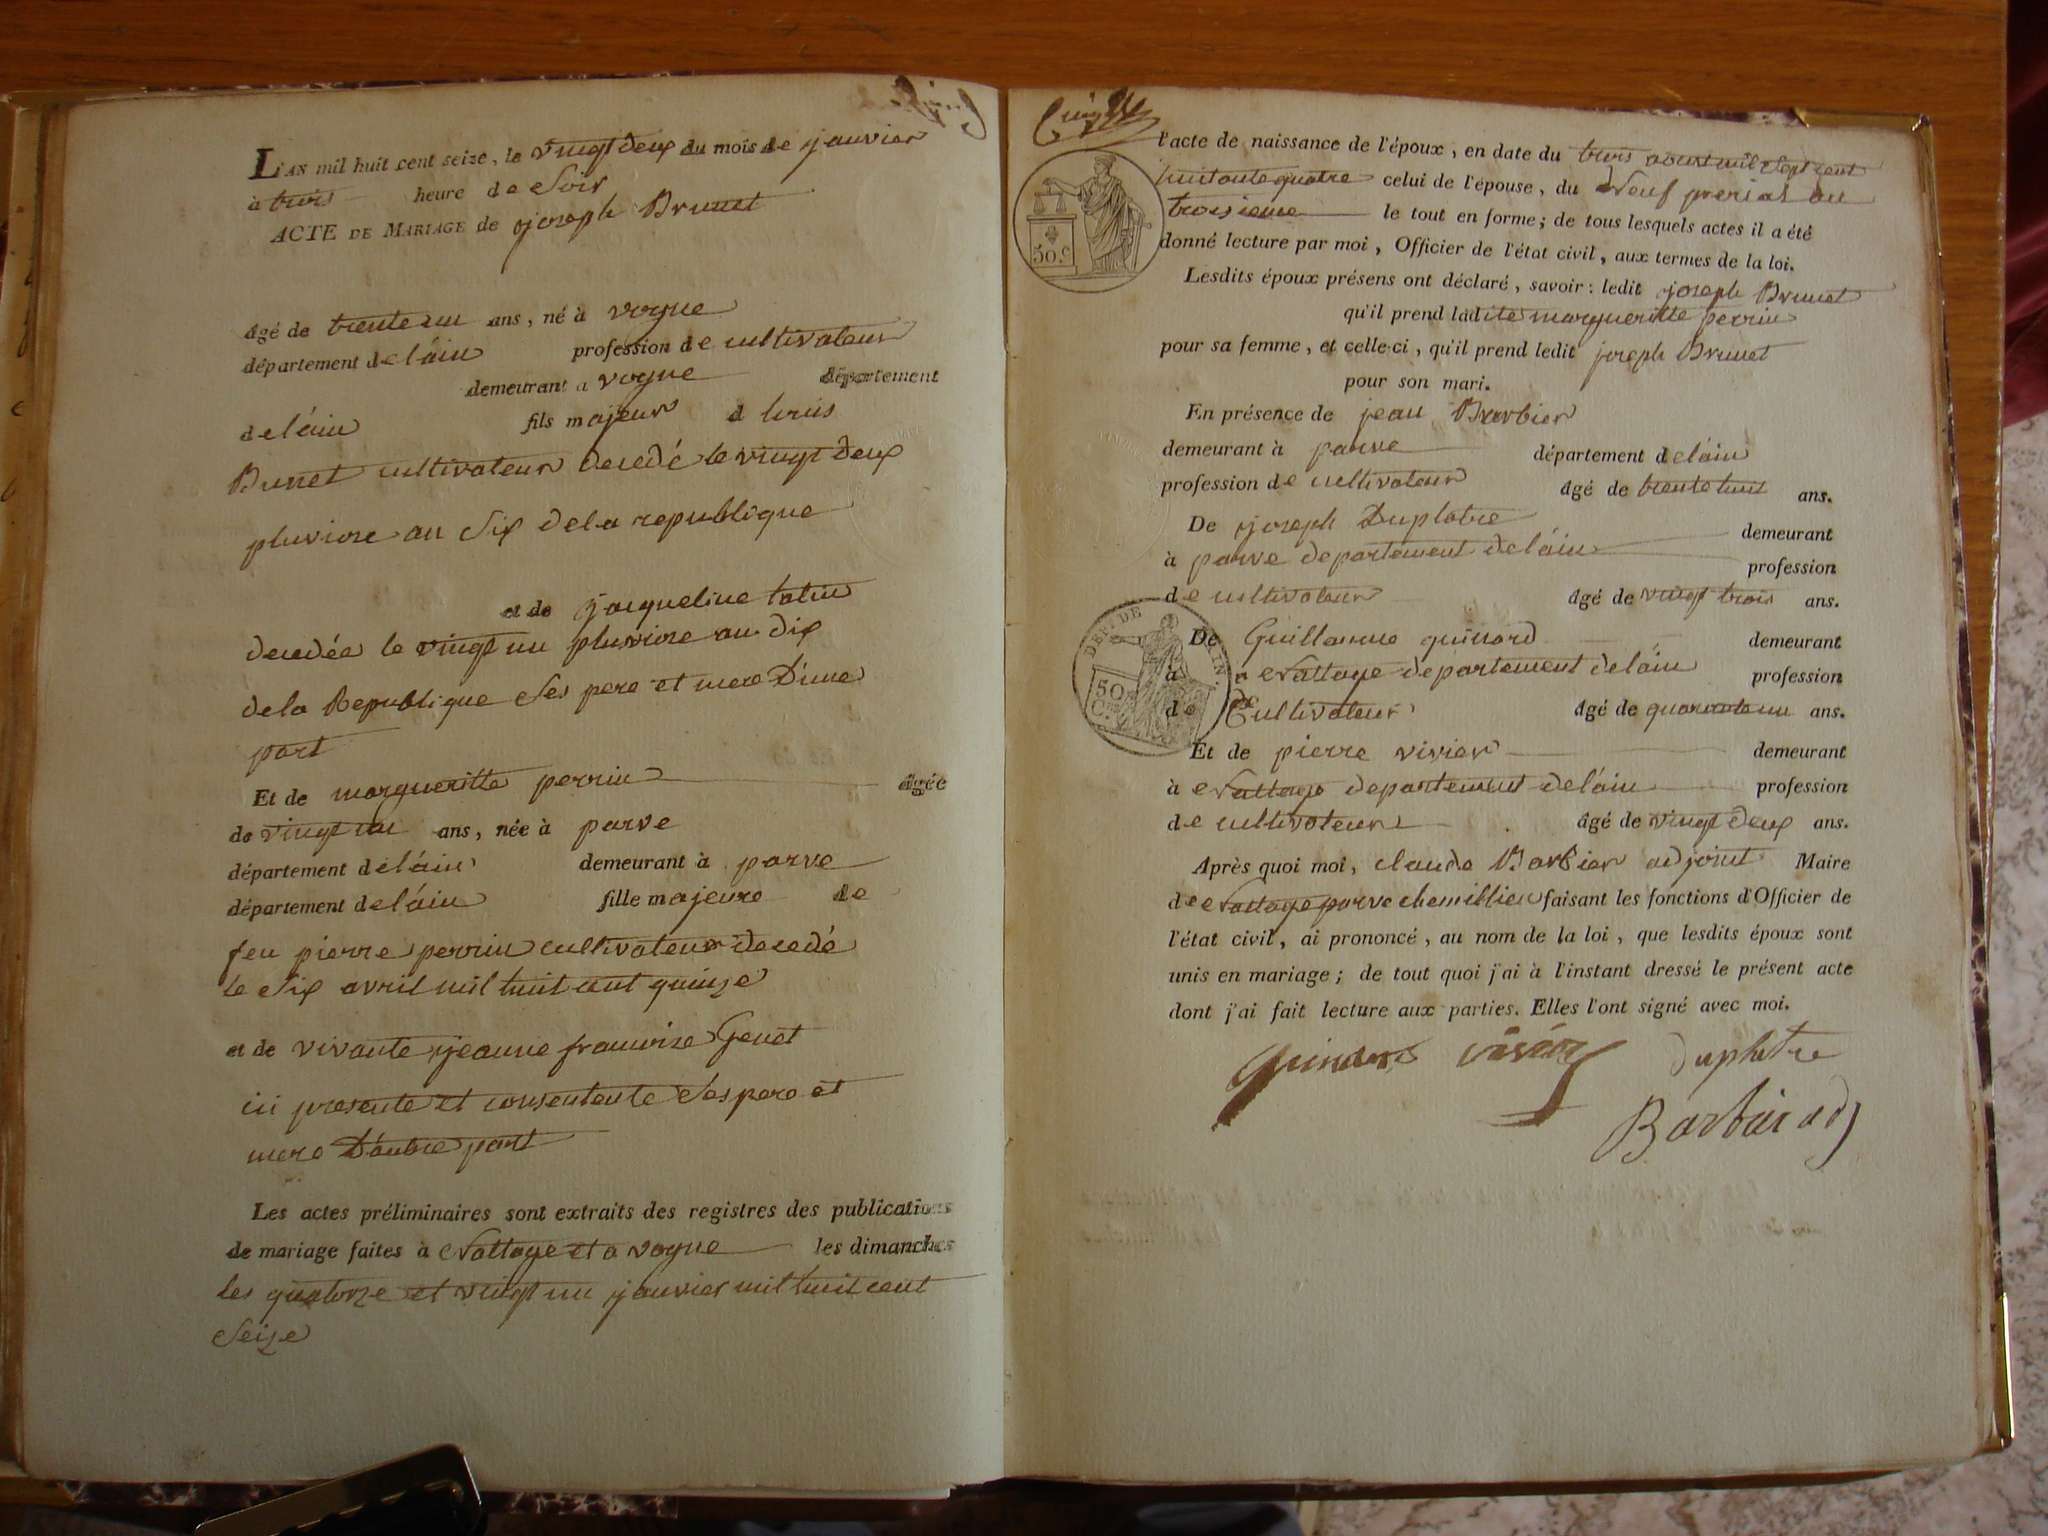 L'AN mil huit cent seize, le vingt deux du mois de janvier
à trois heure de Soir
ACTE DE MARIAGE de joseph Brunet
âgé de trente un ans, né à vogne
département de láin profession de cultivateur
demeurant a vogne département
de láin fils majeur d louis
Bunet cultivateur decedé le vingt deux
pluviose an Six dela republique
et de jacqueline
decedée le vingt un pluviose an dix
dela Republique Ses pere et mere D'une
part
Et de margueritte perrin âgée
de vingt un ans, née à parve
département de láin demeurant à parve
département de láin fille majeure de
feu pierre perrin cultivateur decedé
le Six avril mil huit cent quinze
et de vivante jeanne francoise Genet
ici presente et consentente Ses pere et
mere D'autre part
Les actes préliminaires sont extraits des registres des publications
de mariage faites à Nattage et a vogne les dimanches
les quatorze et vingt un janvier mil huit cent
Seize
l'acte de naissance de l'époux, en date du trois aoust mil Sept cent
huitante quatre celui de l'épouse, du Neuf prerial an
troisieme le tout en forme; de tous lesquels actes il a été
donné lecture par moi, Officier de l'état civil, aux termes de la loi.
50.c
Lesdits époux présens ont déclaré, savoir: ledit joseph Brunet
qu'il prend ladite margueritte perrin
pour sa femme, et celle-ci, qu'il prend ledit joseph Brunet
pour son mari.
En présence de jean Barbier
demeurant à parve département de láin
profession de cultivateur âgé de trente huit ans.
De joseph Duplatre demeurant
à parve departement de láin profession
de cultivateur âgé de vingt trois ans.
DEP. DE L'AIN.
50 C.
De Guillaume guinard demeurant
à a Nattage departement de láin profession
de Cultivateur âgé de quarante un ans.
Et de pierre vivier demeurant
à Nattage departement de láin profession
de cultivateur âgé de vingt deux ans.
Après quoi moi, claude Barbier adjoint Maire
de Nattage parve chemillieu faisant les fonctions d'Officier de
l'état civil, ai prononcé, au nom de la loi, que lesdits époux sont
unis en mariage; de tout quoi j'ai à l'instant dressé le présent acte
dont j'ai fait lecture aux parties. Elles l'ont signé avec moi.
guinard vivier duplatre
Barbier adj